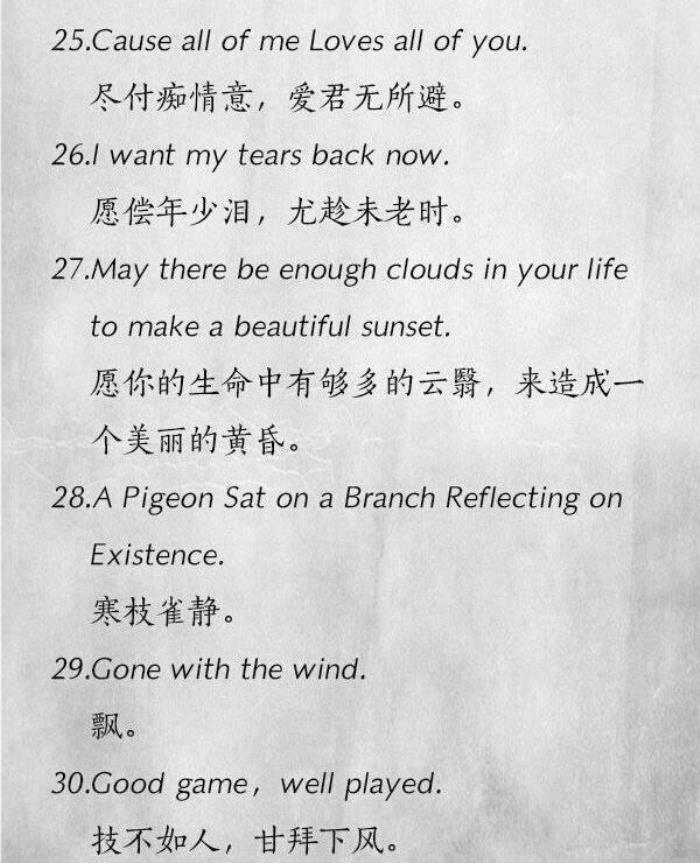 25.Cause all of me Loves all of you.
尽付痴情意，爱君无所避。
26.I want my tears back now.
愿偿年少泪，尤趁未老时。
27.May there be enough clouds in your life
to make a beautiful sunset.
愿你的生命中有够多的云翳，来造成一
个美丽的黄昏。
28.A Pigeon Sat on a Branch Reflecting on
Existence.
寒枝雀静。
29.Gone with the wind.
飘。
30.Good game，well played.
技不如人，甘拜下风。